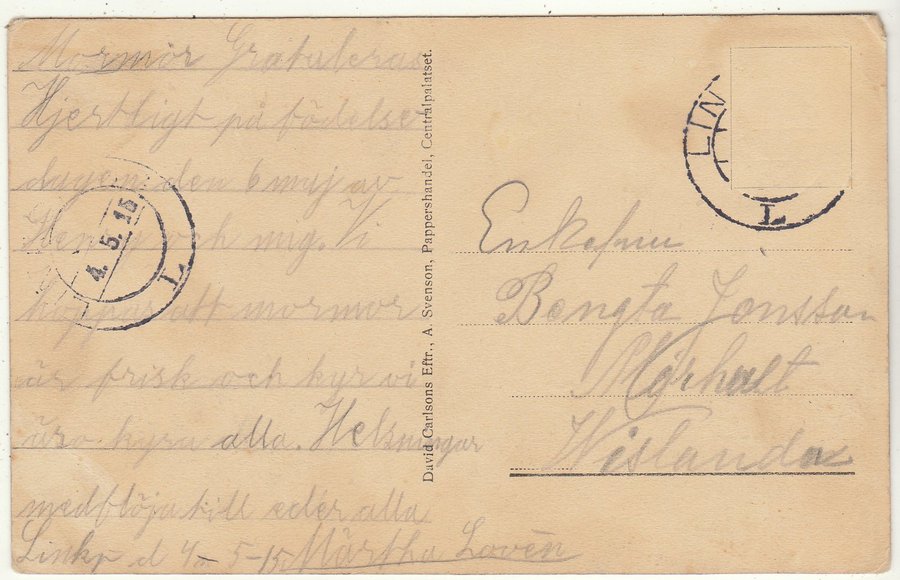 Mormor Gratuleras
Hjertligt på födelse
dagen den 6 maj av
och mig. Vi
hoppas att mormor
är frisk och kyr vi
äro kyra alla. Helsningar
medföja till eder alla
Linkp d 4 5-15 Märtha Lovén
David Carlsons Eftr., A. Svenson, Pappershandel, Centralpalatset.
4. 5. 15
L
LIN
L
Enkefru
Bengta Jonsson
Wislanda